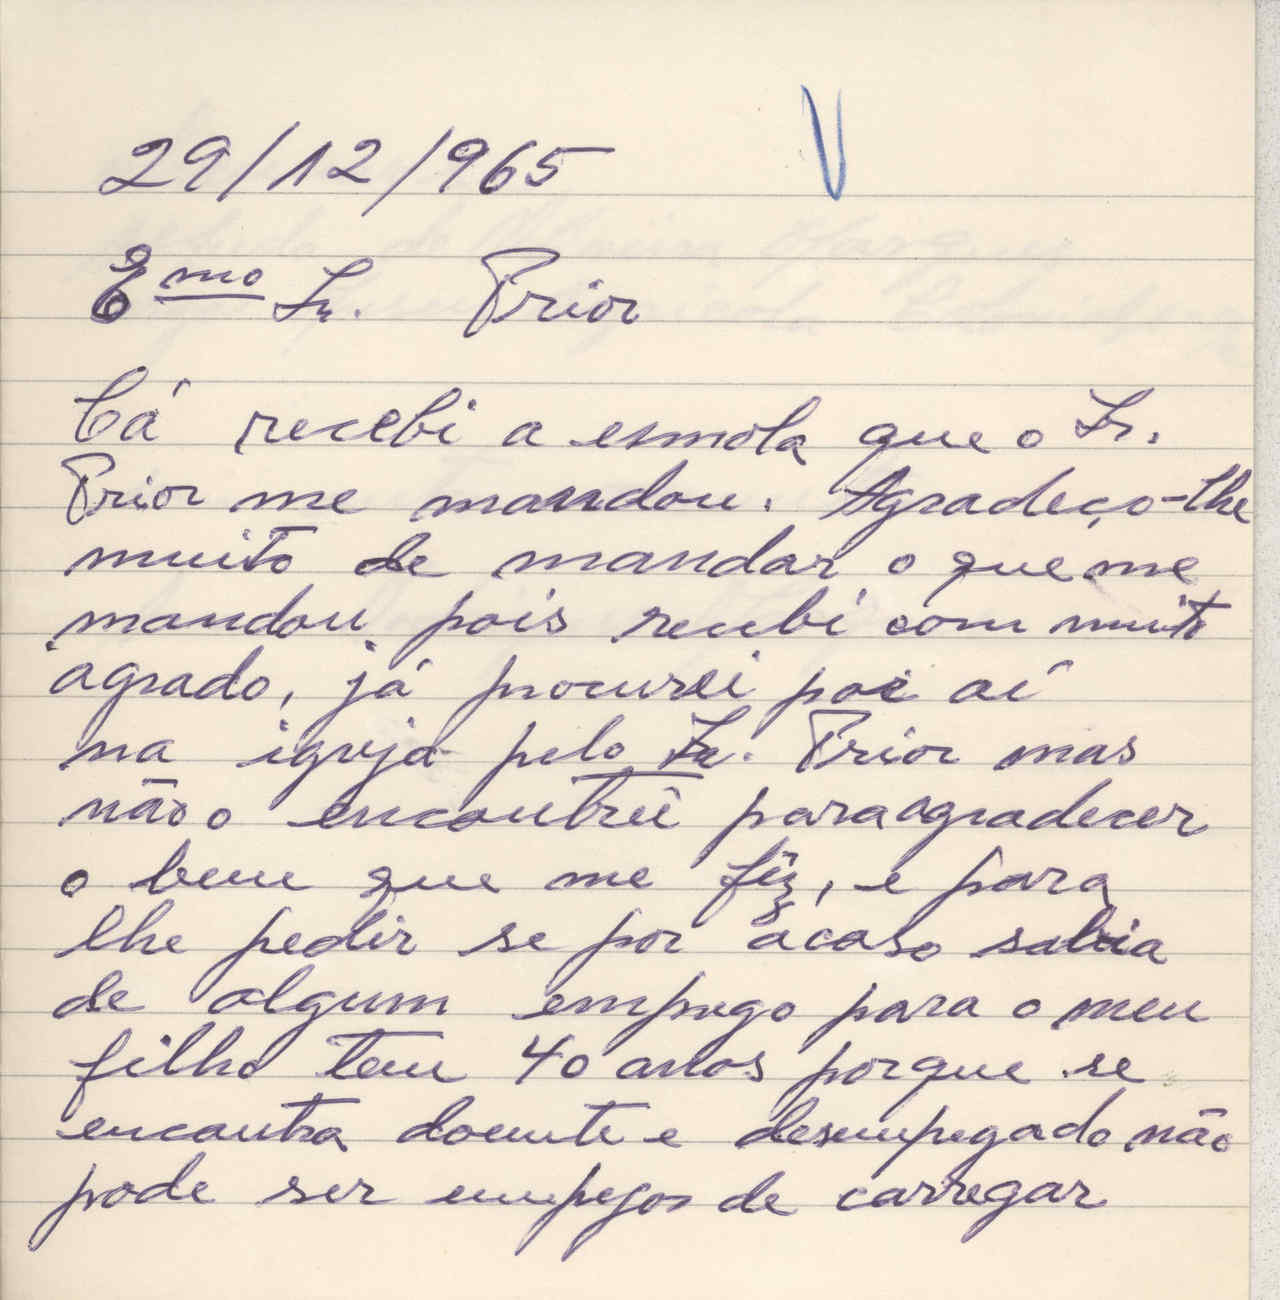 29/12/965
Emo Sr. Prior
Cá recebi a esmola que o Sr.
Prior me mandou. Agradeço-lhe
muito de mandar o que me
mandou pois recubi com muito
agrado, já procurei poi aí
na igreja pelo Sr. Prior mas
não o encontrei para agradecer
o bem que me fêz, e para
lhe pedir se por acaso sabia
de algum empugo para o meu
filho tem 40 anos porque se
encontra doente e desempegado não
pode ser empegos de carregar